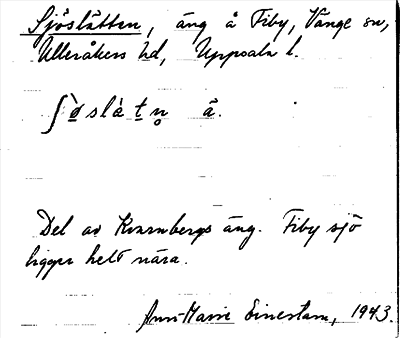 Sjöslåtten, äng å Fiby, Vänge sn,
Ulleråkers hd, Uppsala l.
ʃö̀slå̀tn̥ ä.
Del av Kvarnbergs äng. Fiby sjö
ligger helt nära.
Ann-Marie Einerstam, 1943.